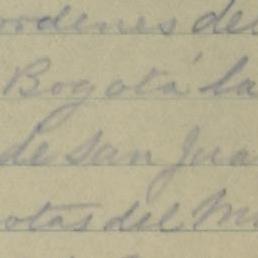 ordenes de
Bogotá la
de San Jua
otas del M